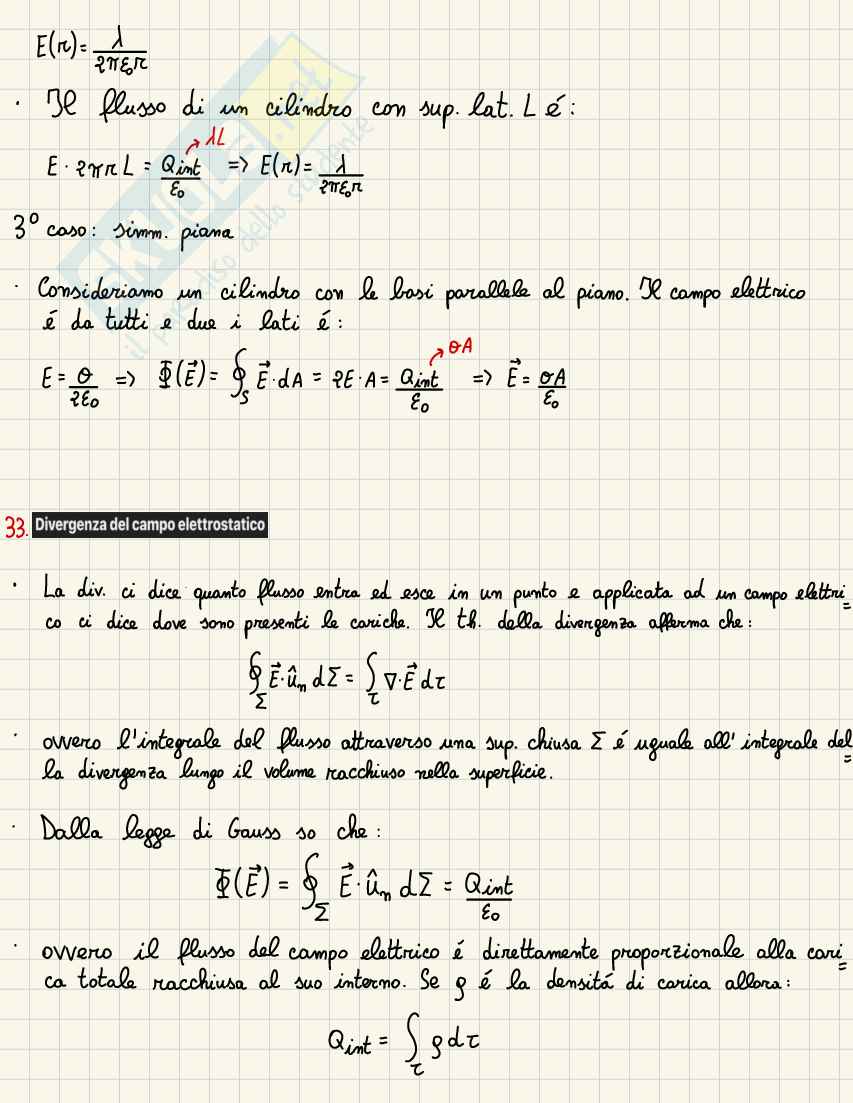 E(r) = λ / 2πε₀r
· Il flusso di un cilindro con sup. lat. L é:
λL
E · 2πr L = Qint / ε₀ => E(r) = λ / 2πε₀r
3° caso: simm. piana
· Consideriamo un cilindro con le basi parallele al piano. Il campo elettrico
é da tutti e due i lati é:
σA
E = σ / 2ε₀ => Φ(E⃗) = ∮S E⃗ · dA = 2E · A = Qint / ε₀ => E⃗ = σA / ε₀
33. Divergenza del campo elettrostatico
· La div. ci dice quanto flusso entra ed esce in un punto e applicata ad un campo elettri=
co ci dice dove sono presenti le cariche. Il th. della divergenza afferma che:
∮Σ E⃗ · ûn dΣ = ∫τ ∇ · E⃗ dτ
· ovvero l'integrale del flusso attraverso una sup. chiusa Σ é uguale all' integrale del=
la divergenza lungo il volume racchiuso nella superficie.
· Dalla legge di Gauss so che:
Φ(E⃗) = ∮Σ E⃗ · ûn dΣ = Qint / ε₀
· ovvero il flusso del campo elettrico é direttamente proporzionale alla cari=
ca totale racchiusa al suo interno. Se ρ é la densitá di carica allora:
Qint = ∫τ ρ dτ
SKUOLA.net
il paradiso dello studente